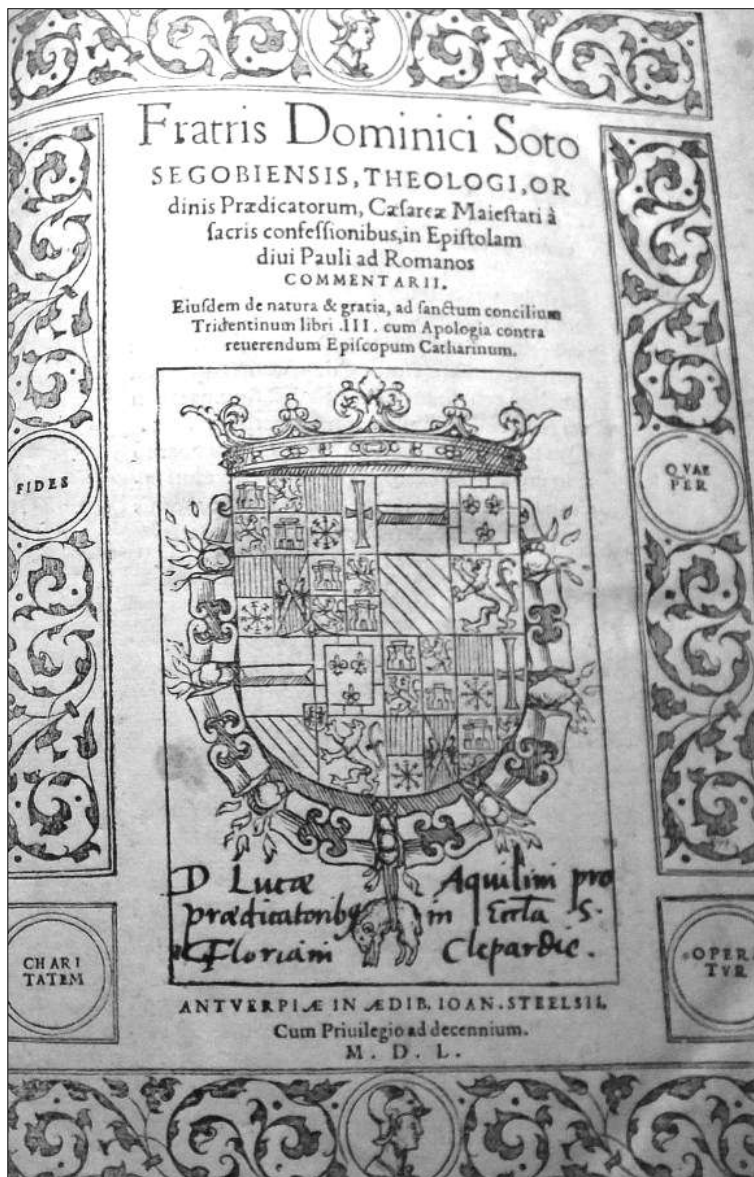 Fratris Dominici Soto
SEGOBIENSIS, THEOLOGI, OR
dinis Prædicatorum, Cæſareæ Maieſtati à
ſacris confeſſionibus, in Epiſtolam
diui Pauli ad Romanos
COMMENTARII.
Eiuſdem de natura & gratia, ad ſanctum concilium
Tridentinum libri .III. cum Apologia contra
reuerendum Epiſcopum Catharinum.
FIDES
QVAE
PER
D Lucæ Aquilini pro
prædicatoribꝫ in Eccła S.
Floriani Clepardię.
CHARI
TATEM
OPERA
TVR
ANTVERPIÆ IN ÆDIB. IOAN. STEELSII.
Cum Priuilegio ad decennium.
M. D. L.